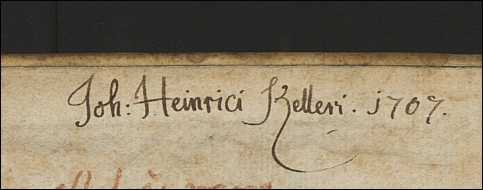 Joh: Heinrici Kelleri. 1707.